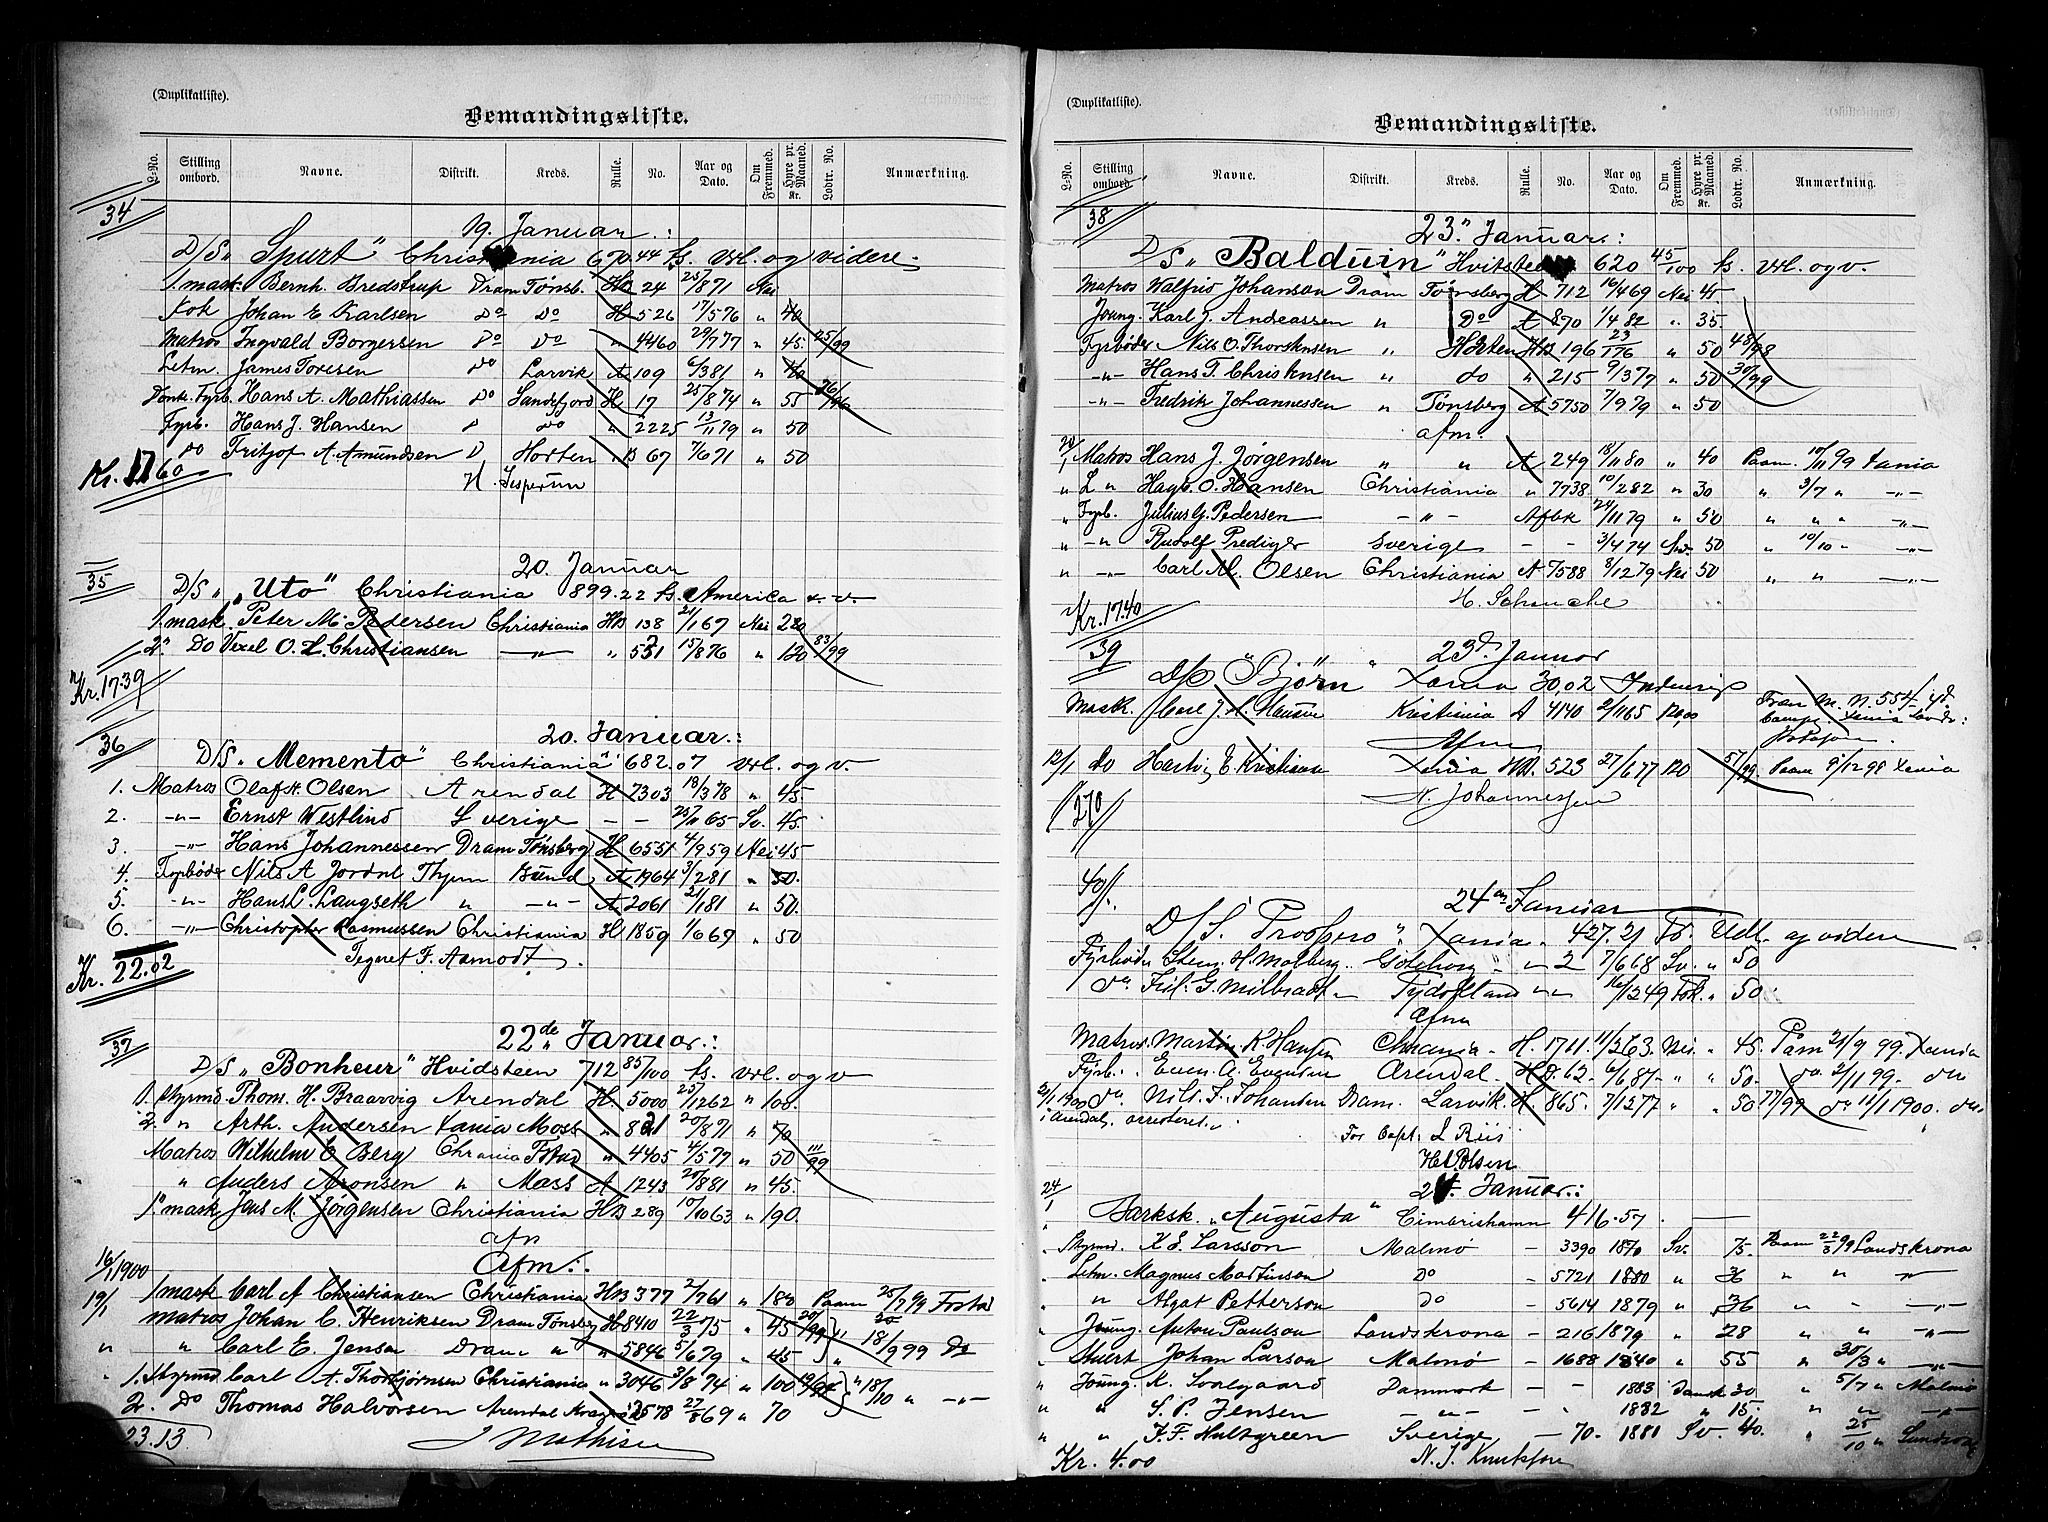 (Duplikatliste).
Bemandingsliste.
L-No. Stilling ombord. Navne. Distrikt. Kreds. Rulle. No. Aar og Dato. Om Fremmed. Hyre pr. Maaned. Kr. Lodtr. No. Anmærkning.
34
19. Januar.:
D/S „Spurt" Christiania 670.44 ts. Vrl. og videre.
1. mask. Bernh. Bredstrup Dram Tønsb. HB 24 25/8 71 Nei
Kok Johan E Karlsen Do Do H 526 17/5 76 " 40
Matros Ingvald Borgersen Do Do " 4460 29/7 77 " 45. 25/99
Letm. James Toresen do Larvik A 109 6/3 81 " 40
Donk. Fyrb. Hans A. Mathiassen Do Sandefjord H 17 25/8 74 " 55 26/96
Fyrb. Hans J. Hansen do " 2225 13/11 79 " 50
do Fritjof A. Amundsen D Horten "B 67 7/6 71 " 50
Kr. 17.60
35
20. Januar
D/S. „Uto" Christiania 899.22 ts. America o. v.
1. mask. Peter M. Pedersen Christiania HB 138 21/1 67 Nei 220
2" Do Vexel O. L. Christiansen —"— " 531 15/8 76 " 120 83/99
Kr. 17.39
36
20. Januar.:
D/S. „Memento" Christiania 682.07 vrl. og v.
1. Matros Olaf H. Olsen Arendal H 7303 18/3 78 " 45.
2. —"— Ernst Westlind Sverige – – 25/11 65 Sv. 45.
3. —"— Hans Johannessen Dram Tønsberg H 6551 4/9 59 Nei 45
4. Fyrbøder Nils A Jordal Thjem Bund A 1964 3/2 81 " 50.
5. —"— Hans L. Langseth " —"— A 2061 21/1 81 " 50.
6. —"— Christopher Rasmussen Christiania H 1859 1/6 69 " 50
Tegnet F. Aamodt.
Kr. 22.02
37
22de Januar.:
D/S „Bonheur" Hvidsteen 712 85/100 ts. vrl. og v
1. Styrmd. Thom. H. Braarvig Arendal H. 5000 25/12 62 " 100.
2. " Arth. Andersen Xania Moss " 821 20/8 71 " 70
Matros Wilhelm E Berg Chrania Fstad " 4405 4/5 77 " 50 111/99
" Anders Aronsen " Moss A 1243 20/8 81 " 45.
1ste mask Jens M. Jørgensen Christiania HB 289 10/10 63 " 190.
afm
Afm.:
16/1 1900
1 mask Carl A Christiansen Christiania HB 377 2/7 61 " 180 Paam 25/7 99 Fstad
19/1 matros Johan C. Henriksen Dram Tønsberg H 8410 22/3 75 " 45
" " Carl E. Jensen Dram " " 5846 5/6 79 " 45 " 18/9 99 Do
" 1. Styrmd Carl A. Thorbjørnsen Christiania " 3046 3/8 74 " 100 " 18/10 " —"—
2. Do Thomas Halvorsen Arendal Kragerø 2578 27/8 69 " 70
23.13
J Mathisen
(Duplikatliste).
Bemandingsliste.
L-No. Stilling ombord. Navne. Distrikt. Kreds. Rulle. No. Aar og Dato. Om Fremmed. Hyre pr. Maaned. Kr. Lodtr. No. Anmærkning.
38
23." Januar.:
D/S „Balduin" Hvitsteen 620 45/100 ts. vrl. og v.
Matros Walfrid Johanson Dram Tønsberg H 712 16/4 69 Nei 45
Joung. Karl J. Andreassen " Do A 870 1/4 82 " 35.
Fyrbøder Nils O. Thorstensen " Horten HB 196 23/1 76 " 50 48/98
—"— Hans T. Christensen " do " 215 9/3 79 " 50 30/99
—"— Fredrik Johannessen " Tønsberg A 5750 7/9 79 " 50
afm.
20/1 Matros Hans J. Jørgensen " " A 249 18/11 80 " 40 Paam. 10/11 99 Xania
" L " Hagb. O. Hansen Christiania " 7738 10/2 82 " 30 " 3/7 " —"—
" Fyrb. Julius G. Pedersen —"— Afbk 24/11 79 " 50 " " " —"—
" —" Rudolf Prediger Sverige – – 3/4 74 50 " 10/10 " —"—
" —"— Carl M. Olsen Christiania A 7588 8/12 79 Nei 50 " " —"—
H. Schanche
Kr. 17.40
39
23d. Januar
D/S "Björn" Xania 30,02 Indenrigs
Mask. Carl J. A. Hansen Kristiania A 4140 2/11 65 120,00 Fran M. N. 554
Afm
12/1 do Hartvig E. Kristiansen Xania HB. 523 27/6 77 120 57/99 Paam 9/12 98 Xania
N. Johannessen
270
40
24de Januar
D/S. Prospero " Xania. 427.21 To. Udl. og videre
Fyrbøder H. Malberg. Göteborg " " 2 7/6 68 Sv. " 50
do G. Milbradt Tydskland " " 16/12 49 " 50.
Afm
Matros. Martin K. Hansen Chrania. H. 1711. 11/2 63. Nei. " 45. Paam 21/9 99. Xania
Fyrb. Even. A. Evensen Arendal. H.B. 62. 6/6 87 " " 50. do 2/1 99. do
21/1 1900 do Nils. F. Johansen Dram. Larvik. H. 865. 7/12 77 " " 50 77/99 do 11/1 1900. do
i Arendal, arresteret.
For Capt. L Riis
H. Olsen
24. Januar.:
24/1
Barksk. „Augusta" Cimbrishamn 416.57.
Styrmd. K E. Larsson Malmö – 3390 1870 Sv. 75 Paam 22/3 99 Landskrona
Letm. Magnus Martinson Do – 5721 1880 " 36 " " "
" Algot Petterson Do – 5614 1879 " 36 " " —"—
Joung. Anton Paulson Landskrona – 216 1879 " 28 " " —"—
Stuert Johan Larson Malmö – 1688 1840 " 55 " 30/3 " —"—
" Joung. K. Svalgaard Danmark – – 1883 Dansk 30 " 5/7 " Malmö
" " S. P. Jensen —"— – 1882 " 15. " " —"—
" " K. F. Hultgreen Sverige – 70. 1881 Sv. 40. " 25/10 "
Kr. 4.00
N. J. Knutsson